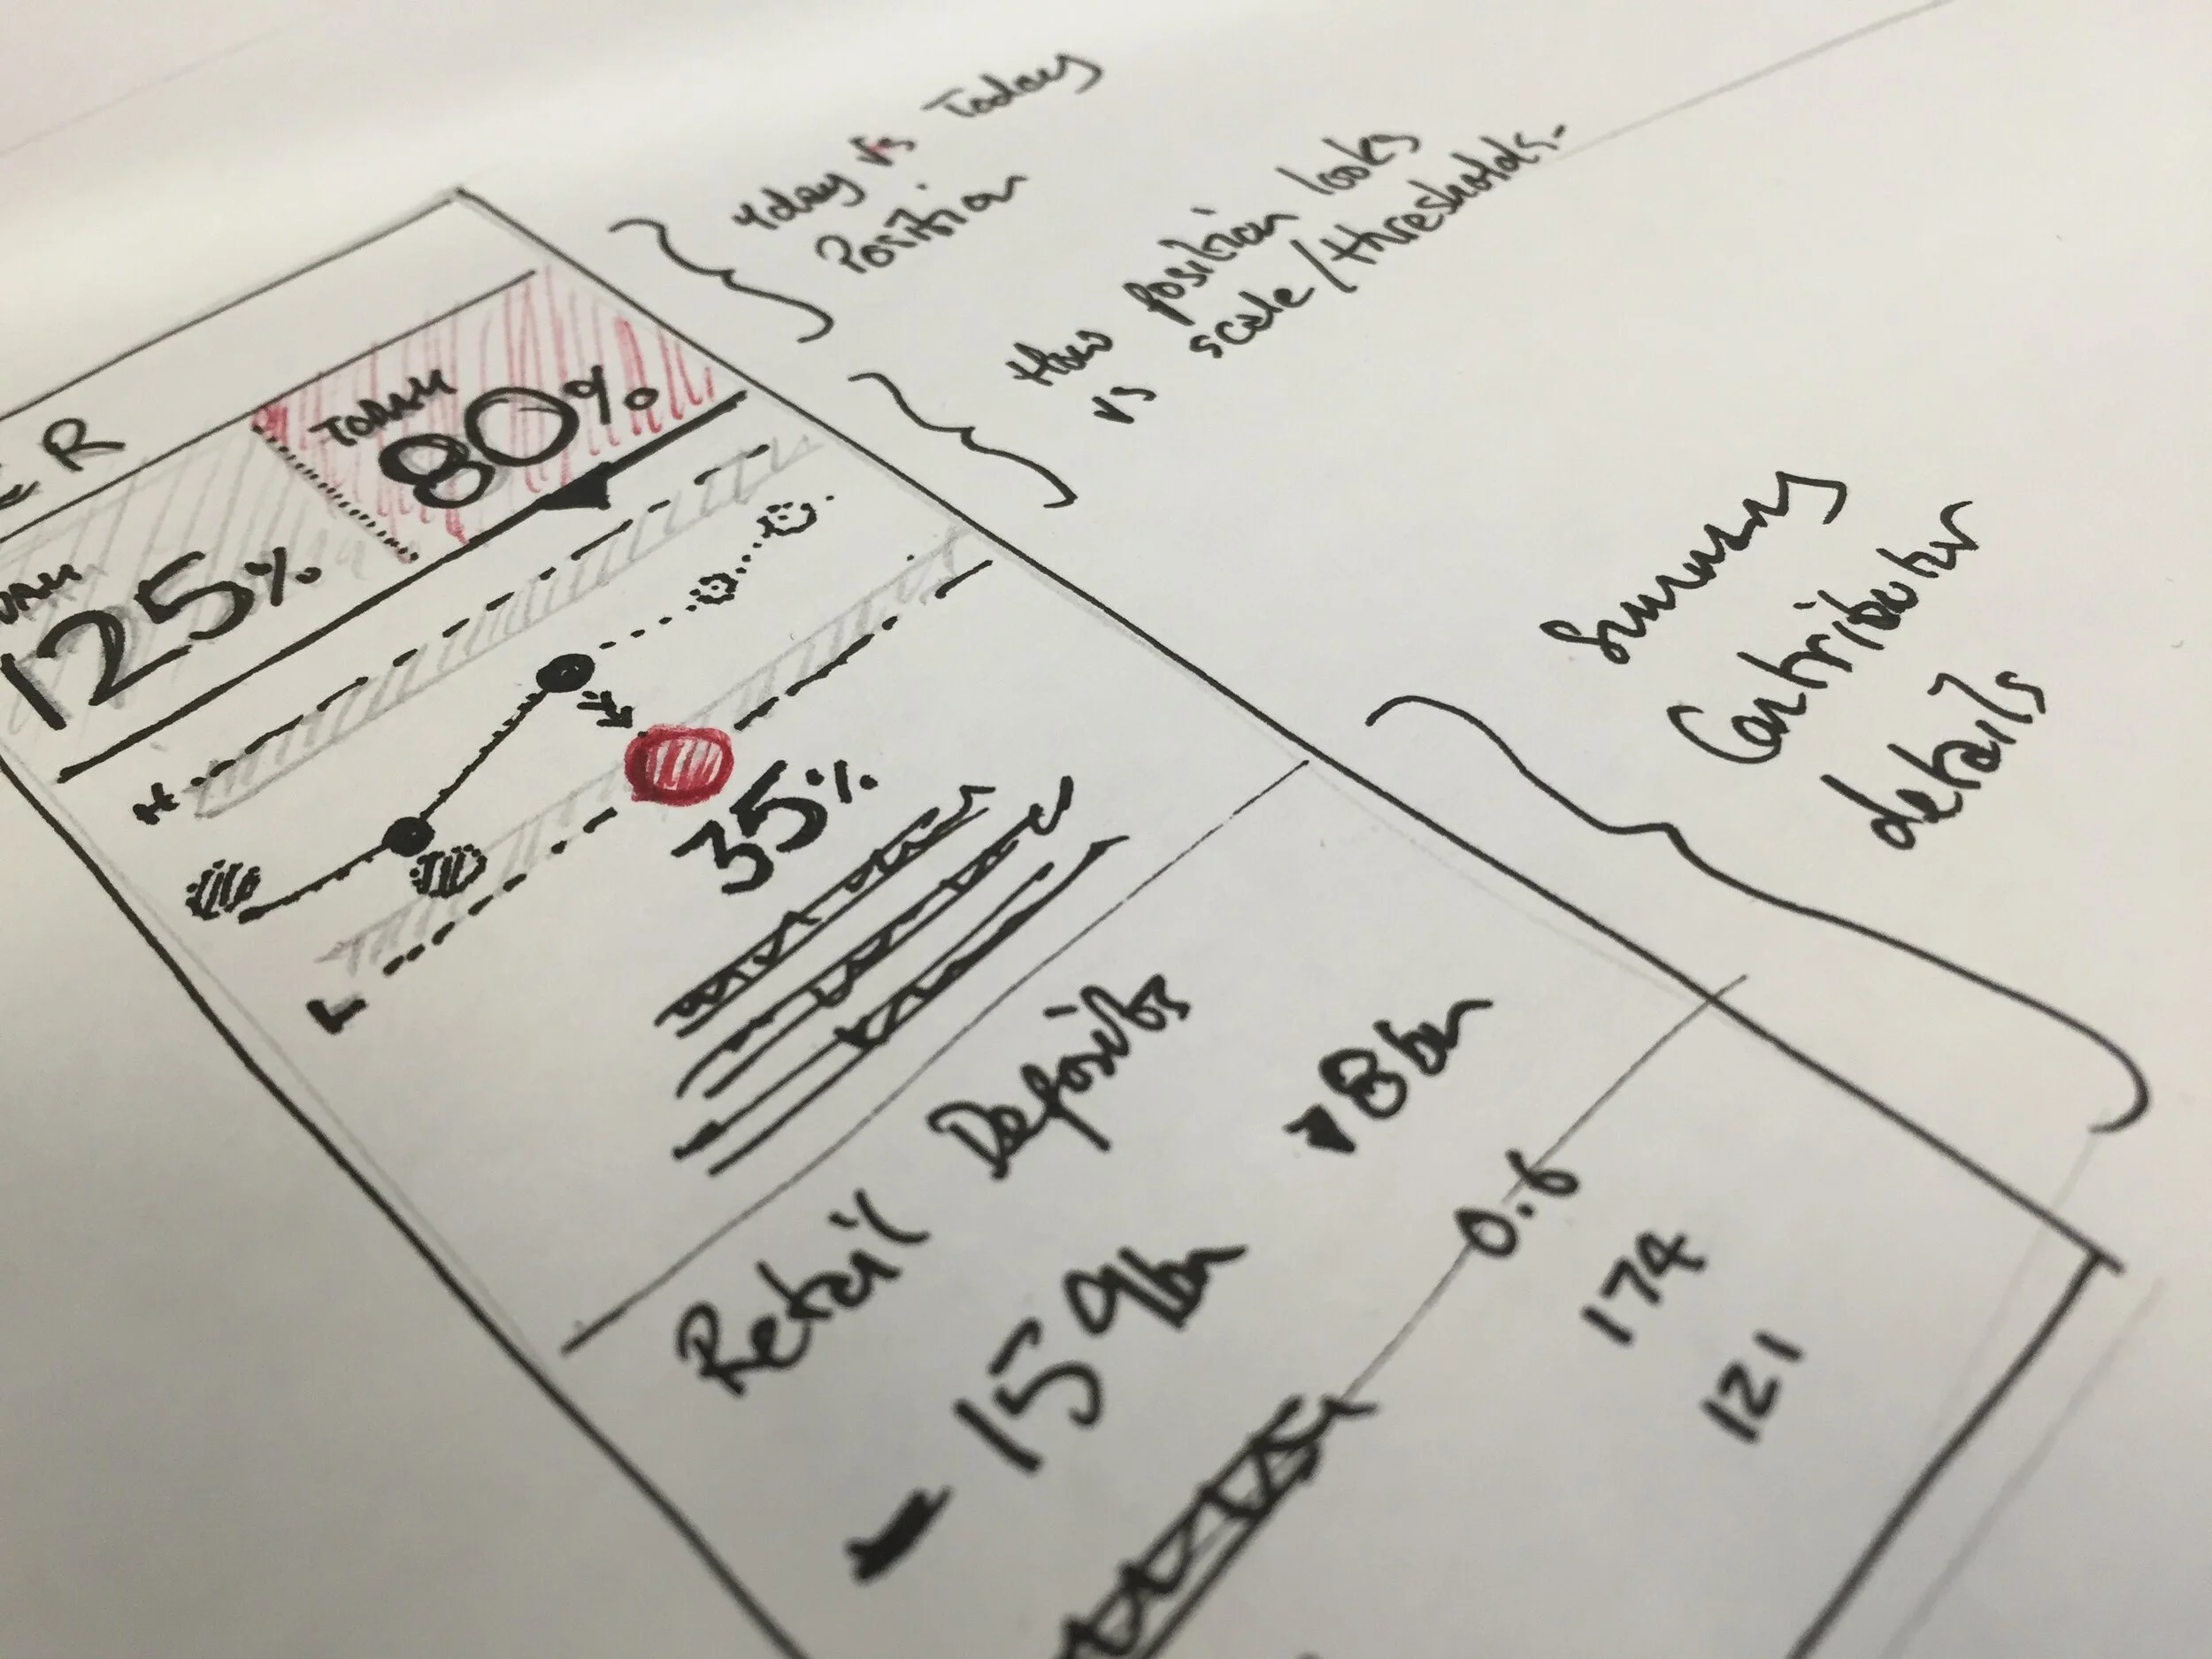 Yday vs Today
Position
How position looks
vs scale/thresholds.
Summary
Contributor
details
ER
TODAY
80%
125%
H
L
35%
Retail Deposits
159bn
▼8bn
0.6
174
121